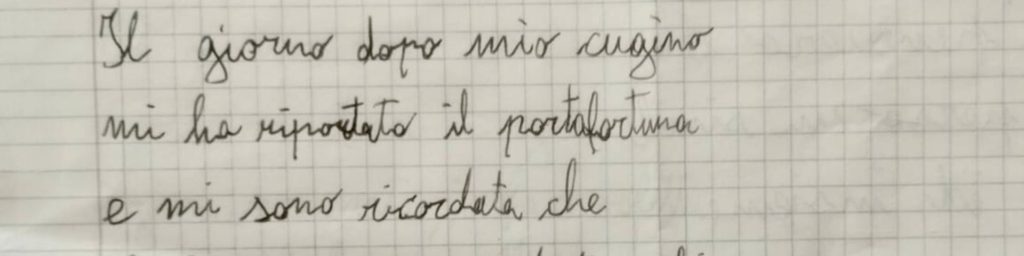 Il giorno dopo mio cugino
mi ha riportato il portafortuna
e mi sono ricordata che